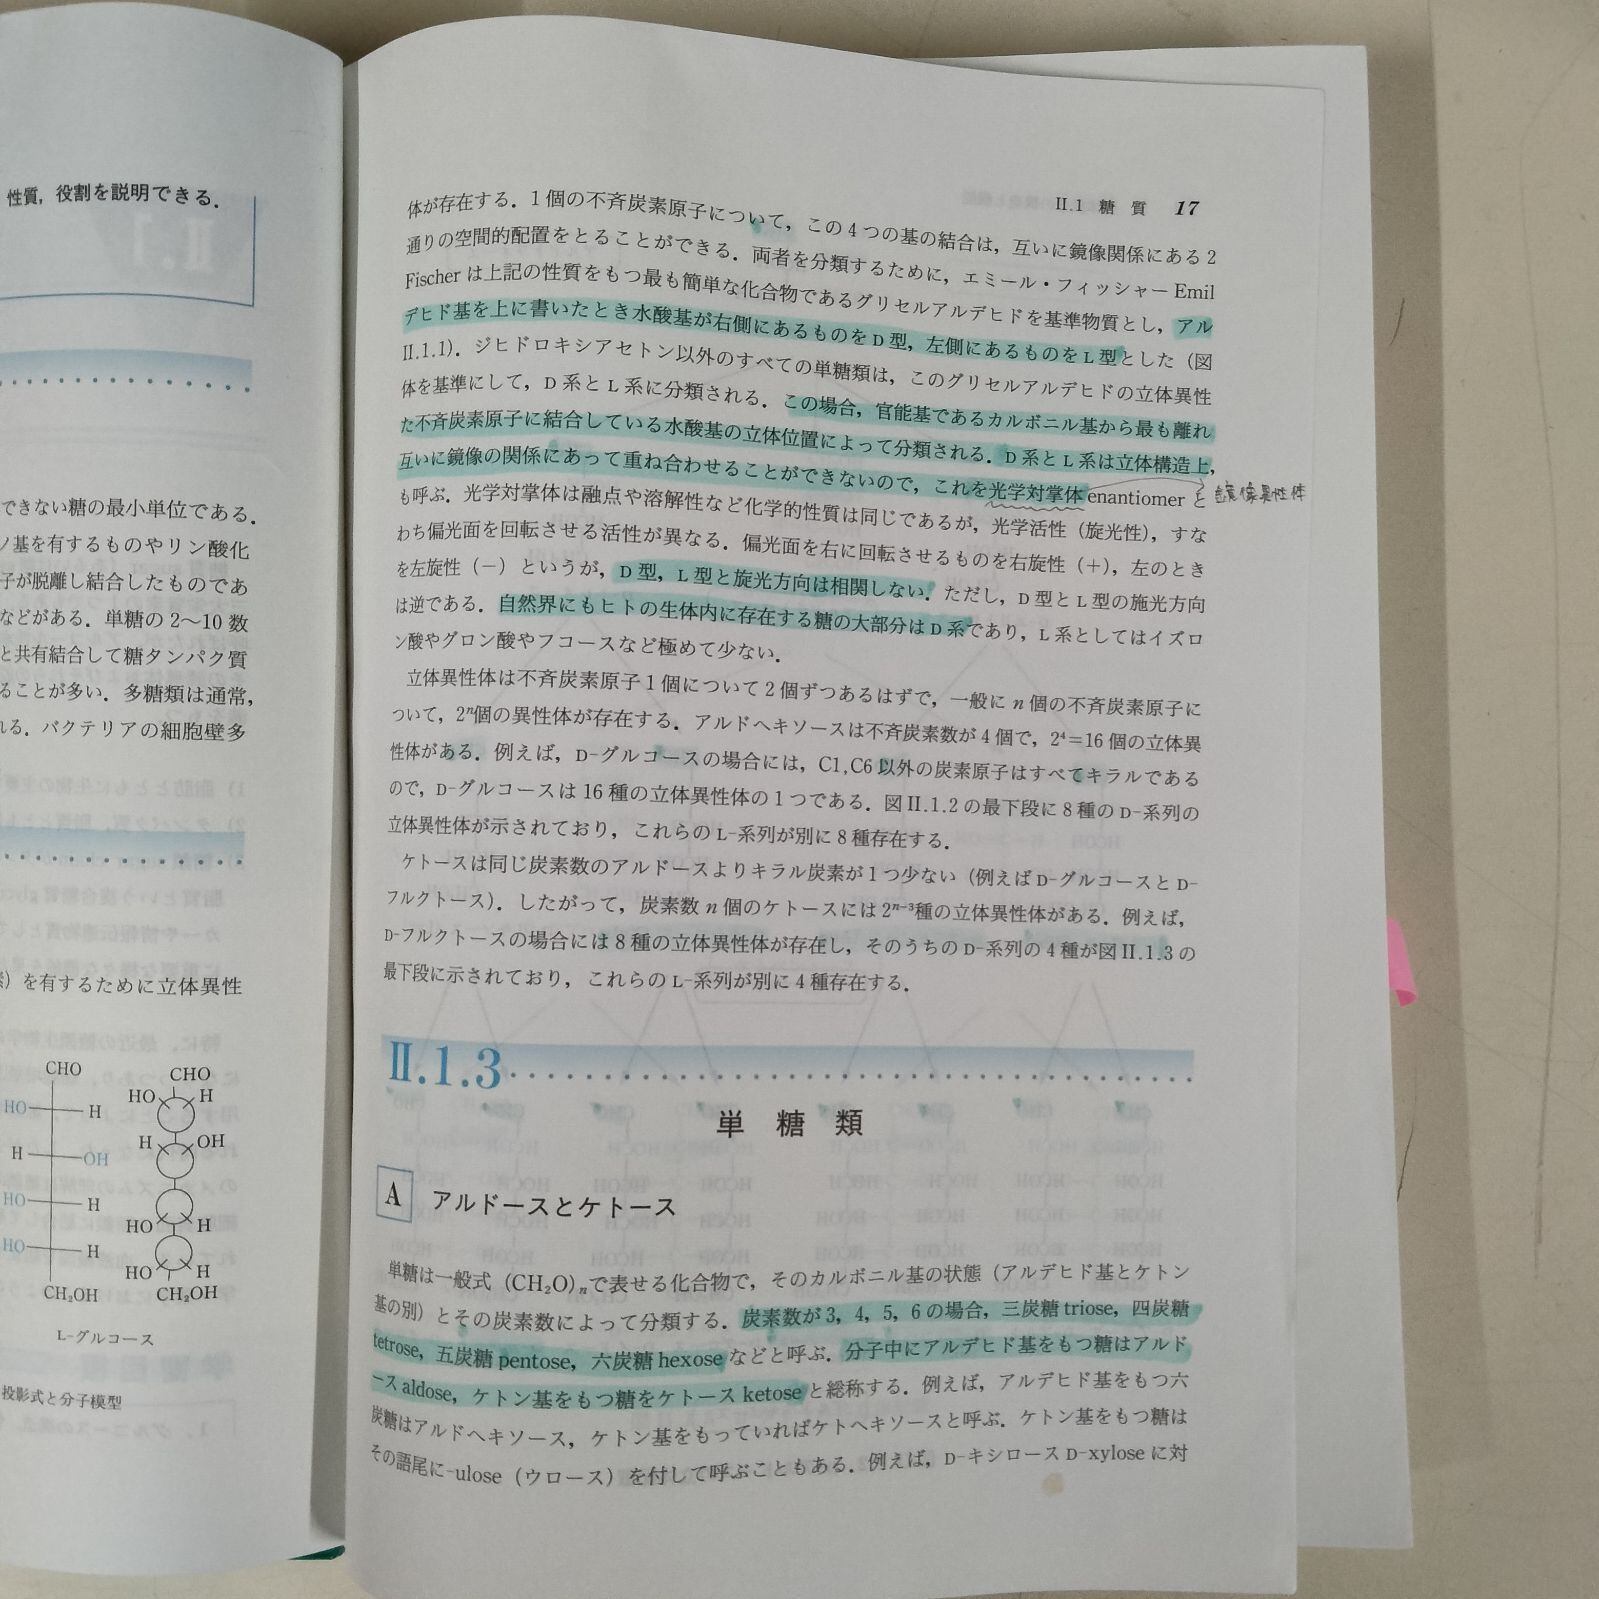 性質，役割を説明できる．
できない糖の最小単位である．
ノ基を有するものやリン酸化
子が脱離し結合したものであ
などがある．単糖の2〜10数
と共有結合して糖タンパク質
ることが多い．多糖類は通常，
れる．バクテリアの細胞壁多
を有するために立体異性
CHO
HO H
H OH
HO H
HO H
CH₂OH
CHO
HO H
H OH
HO H
HO H
CH₂OH
L-グルコース
投影式と分子模型
II.1 糖 質 17
体が存在する．1個の不斉炭素原子について，この4つの基の結合は，互いに鏡像関係にある2
通りの空間的配置をとることができる．両者を分類するために，エミール・フィッシャー Emil
Fischer は上記の性質をもつ最も簡単な化合物であるグリセルアルデヒドを基準物質とし，アル
デヒド基を上に書いたとき水酸基が右側にあるものを D 型，左側にあるものを L 型とした（図
II.1.1）．ジヒドロキシアセトン以外のすべての単糖類は，このグリセルアルデヒドの立体異性
体を基準にして，D 系と L 系に分類される．この場合，官能基であるカルボニル基から最も離れ
た不斉炭素原子に結合している水酸基の立体位置によって分類される．D 系と L 系は立体構造上，
互いに鏡像の関係にあって重ね合わせることができないので，これを光学対掌体 enantiomer と
鏡像異性体
も呼ぶ．光学対掌体は融点や溶解性など化学的性質は同じであるが，光学活性（旋光性），すな
わち偏光面を回転させる活性が異なる．偏光面を右に回転させるものを右旋性（＋），左のとき
を左旋性（－）というが，D 型，L 型と旋光方向は相関しない．ただし，D 型と L 型の施光方向
は逆である．自然界にもヒトの生体内に存在する糖の大部分は D 系であり，L 系としてはイズロ
ン酸やグロン酸やフコースなど極めて少ない．
立体異性体は不斉炭素原子1個について2個ずつあるはずで，一般に n 個の不斉炭素原子に
ついて，2ⁿ個の異性体が存在する．アルドヘキソースは不斉炭素数が4個で，2⁴＝16個の立体異
性体がある．例えば，D-グルコースの場合には，C1,C6以外の炭素原子はすべてキラルである
ので，D-グルコースは16種の立体異性体の1つである．図II.1.2の最下段に8種のD-系列の
立体異性体が示されており，これらのL-系列が別に8種存在する．
ケトースは同じ炭素数のアルドースよりキラル炭素が1つ少ない（例えばD-グルコースとD-
フルクトース）．したがって，炭素数 n 個のケトースには2ⁿ⁻³種の立体異性体がある．例えば，
D-フルクトースの場合には8種の立体異性体が存在し，そのうちのD-系列の4種が図II.1.3の
最下段に示されており，これらのL-系列が別に4種存在する．
II.1.3
単 糖 類
A アルドースとケトース
単糖は一般式 (CH₂O)ₙで表せる化合物で，そのカルボニル基の状態（アルデヒド基とケトン
基の別）とその炭素数によって分類する．炭素数が3，4，5，6の場合，三炭糖 triose，四炭糖
tetrose，五炭糖 pentose，六炭糖 hexose などと呼ぶ．分子中にアルデヒド基をもつ糖はアルド
ース aldose，ケトン基をもつ糖をケトース ketose と総称する．例えば，アルデヒド基をもつ六
炭糖はアルドヘキソース，ケトン基をもっていればケトヘキソースと呼ぶ．ケトン基をもつ糖は
その語尾に-ulose（ウロース）を付して呼ぶこともある．例えば，D-キシロース D-xylose に対